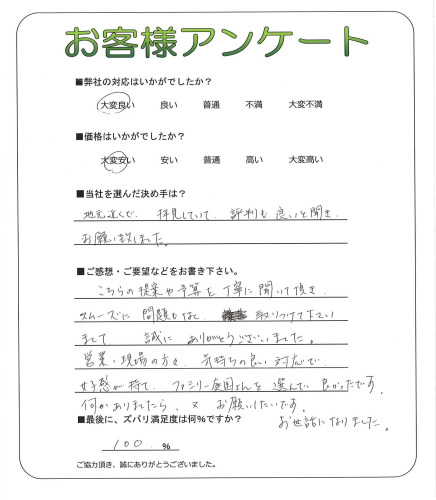 お客様アンケート
■弊社の対応はいかがでしたか?
大変良い 良い 普通 不満 大変不満
■価格はいかがでしたか?
大変安い 安い 普通 高い 大変高い
■当社を選んだ決め手は?
地元近くで、拝見していて、評判も良いと聞き、
お願い致しました。
■ご感想・ご要望などをお書き下さい。
こちらの提案や予算を丁寧に聞いて頂き、
スムーズに問題もなく、取りつけて下さい
まして 誠に ありがとうございました。
営業・現場の方々、気持ちの良い対応で、
好感が持て、ファミリー庭園さんを選んで良かったです。
何かありましたら、又 お願いしたいです。
お世話になりました。
■最後に、ズバリ満足度は何%ですか?
100 %
ご協力頂き、誠にありがとうございました。